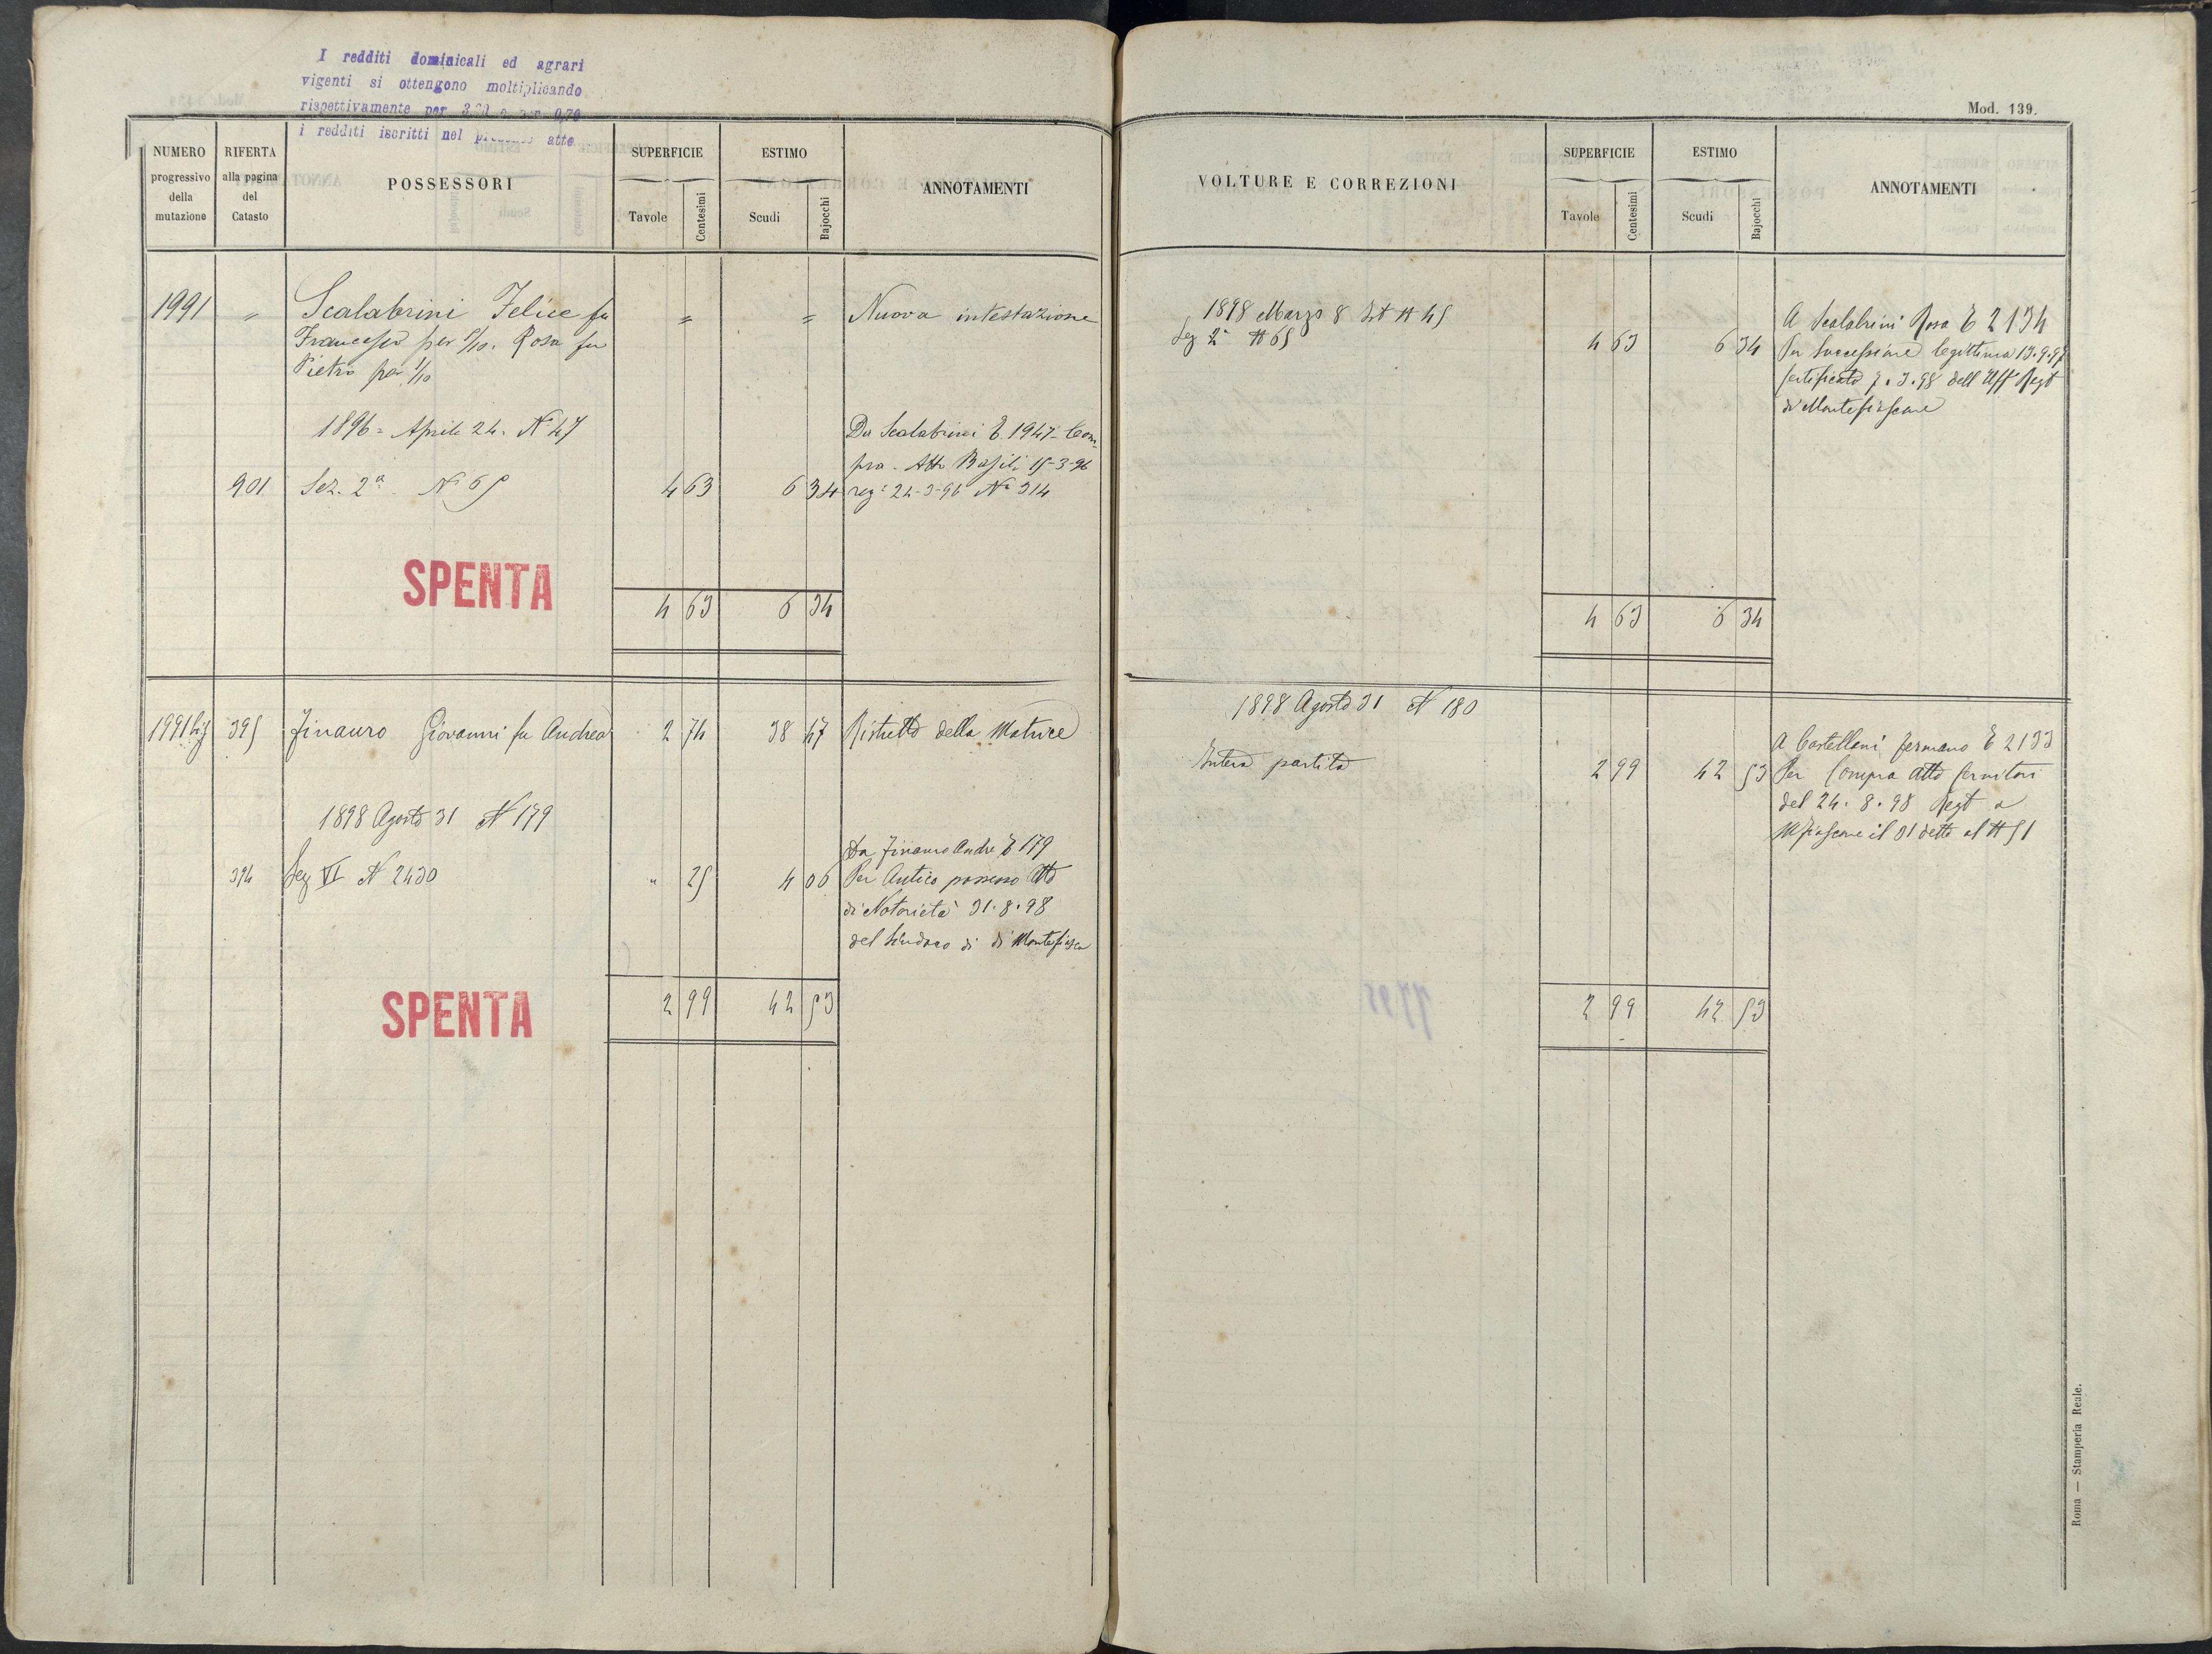 I redditi dominicali ed agrari
vigenti si ottengono moltiplicando
rispettivamente per 0,70
i redditi iscritti nel atto
NUMERO progressivo della mutazione
RIFERTA alla pagina del Catasto
POSSESSORI
SUPERFICIE Tavole Centesimi
ESTIMO Scudi Bajocchi
ANNOTAMENTI
1991 " Scalabrini Felice fu = = Nuova intestazione
Francesco per 9/10. Rosa fu
Pietro per 1/10
1896 = Aprile 24. N° 47 Da Scalabrini E. 1947 - Com-
pra - Atto Basili 15-3-96
901 Sez. 2a N° 65 4 63 6 34 reg° 24-3-96 N° 314
SPENTA
4 63 6 34
1991 bis 395 Finauro Giovanni fu Andrea 2 74 38 47 Ristretto della Matrice
1898 Agosto 31 N 179
Da Finauro Andre E 179
394 Sez VI N 2430 " 25 4 06 Per Antico possesso Atto
di Notorietà 31.8.98
del Sindaco di di Montefiasco
SPENTA
2 99 42 53
Mod. 139.
VOLTURE E CORREZIONI
SUPERFICIE Tavole Centesimi
ESTIMO Scudi Bajocchi
ANNOTAMENTI
1898 Marzo 8 N 45
Sez 2a N 65 4 63 6 34 A Scalabrini Rosa E 2134
Per Successione legittima 13.9.97
certificato 7.3.98 dell'Uff Regt
di Montefiascone
4 63 6 34
1898 Agosto 31 N 180
Intera partita 2 99 42 53 A Castellani Germano E 2133
Per Compra Atto
del 24.8.98 Regt a
Mfiascone il 31 detto al N 51
2 99 42 53
Roma — Stamperia Reale.